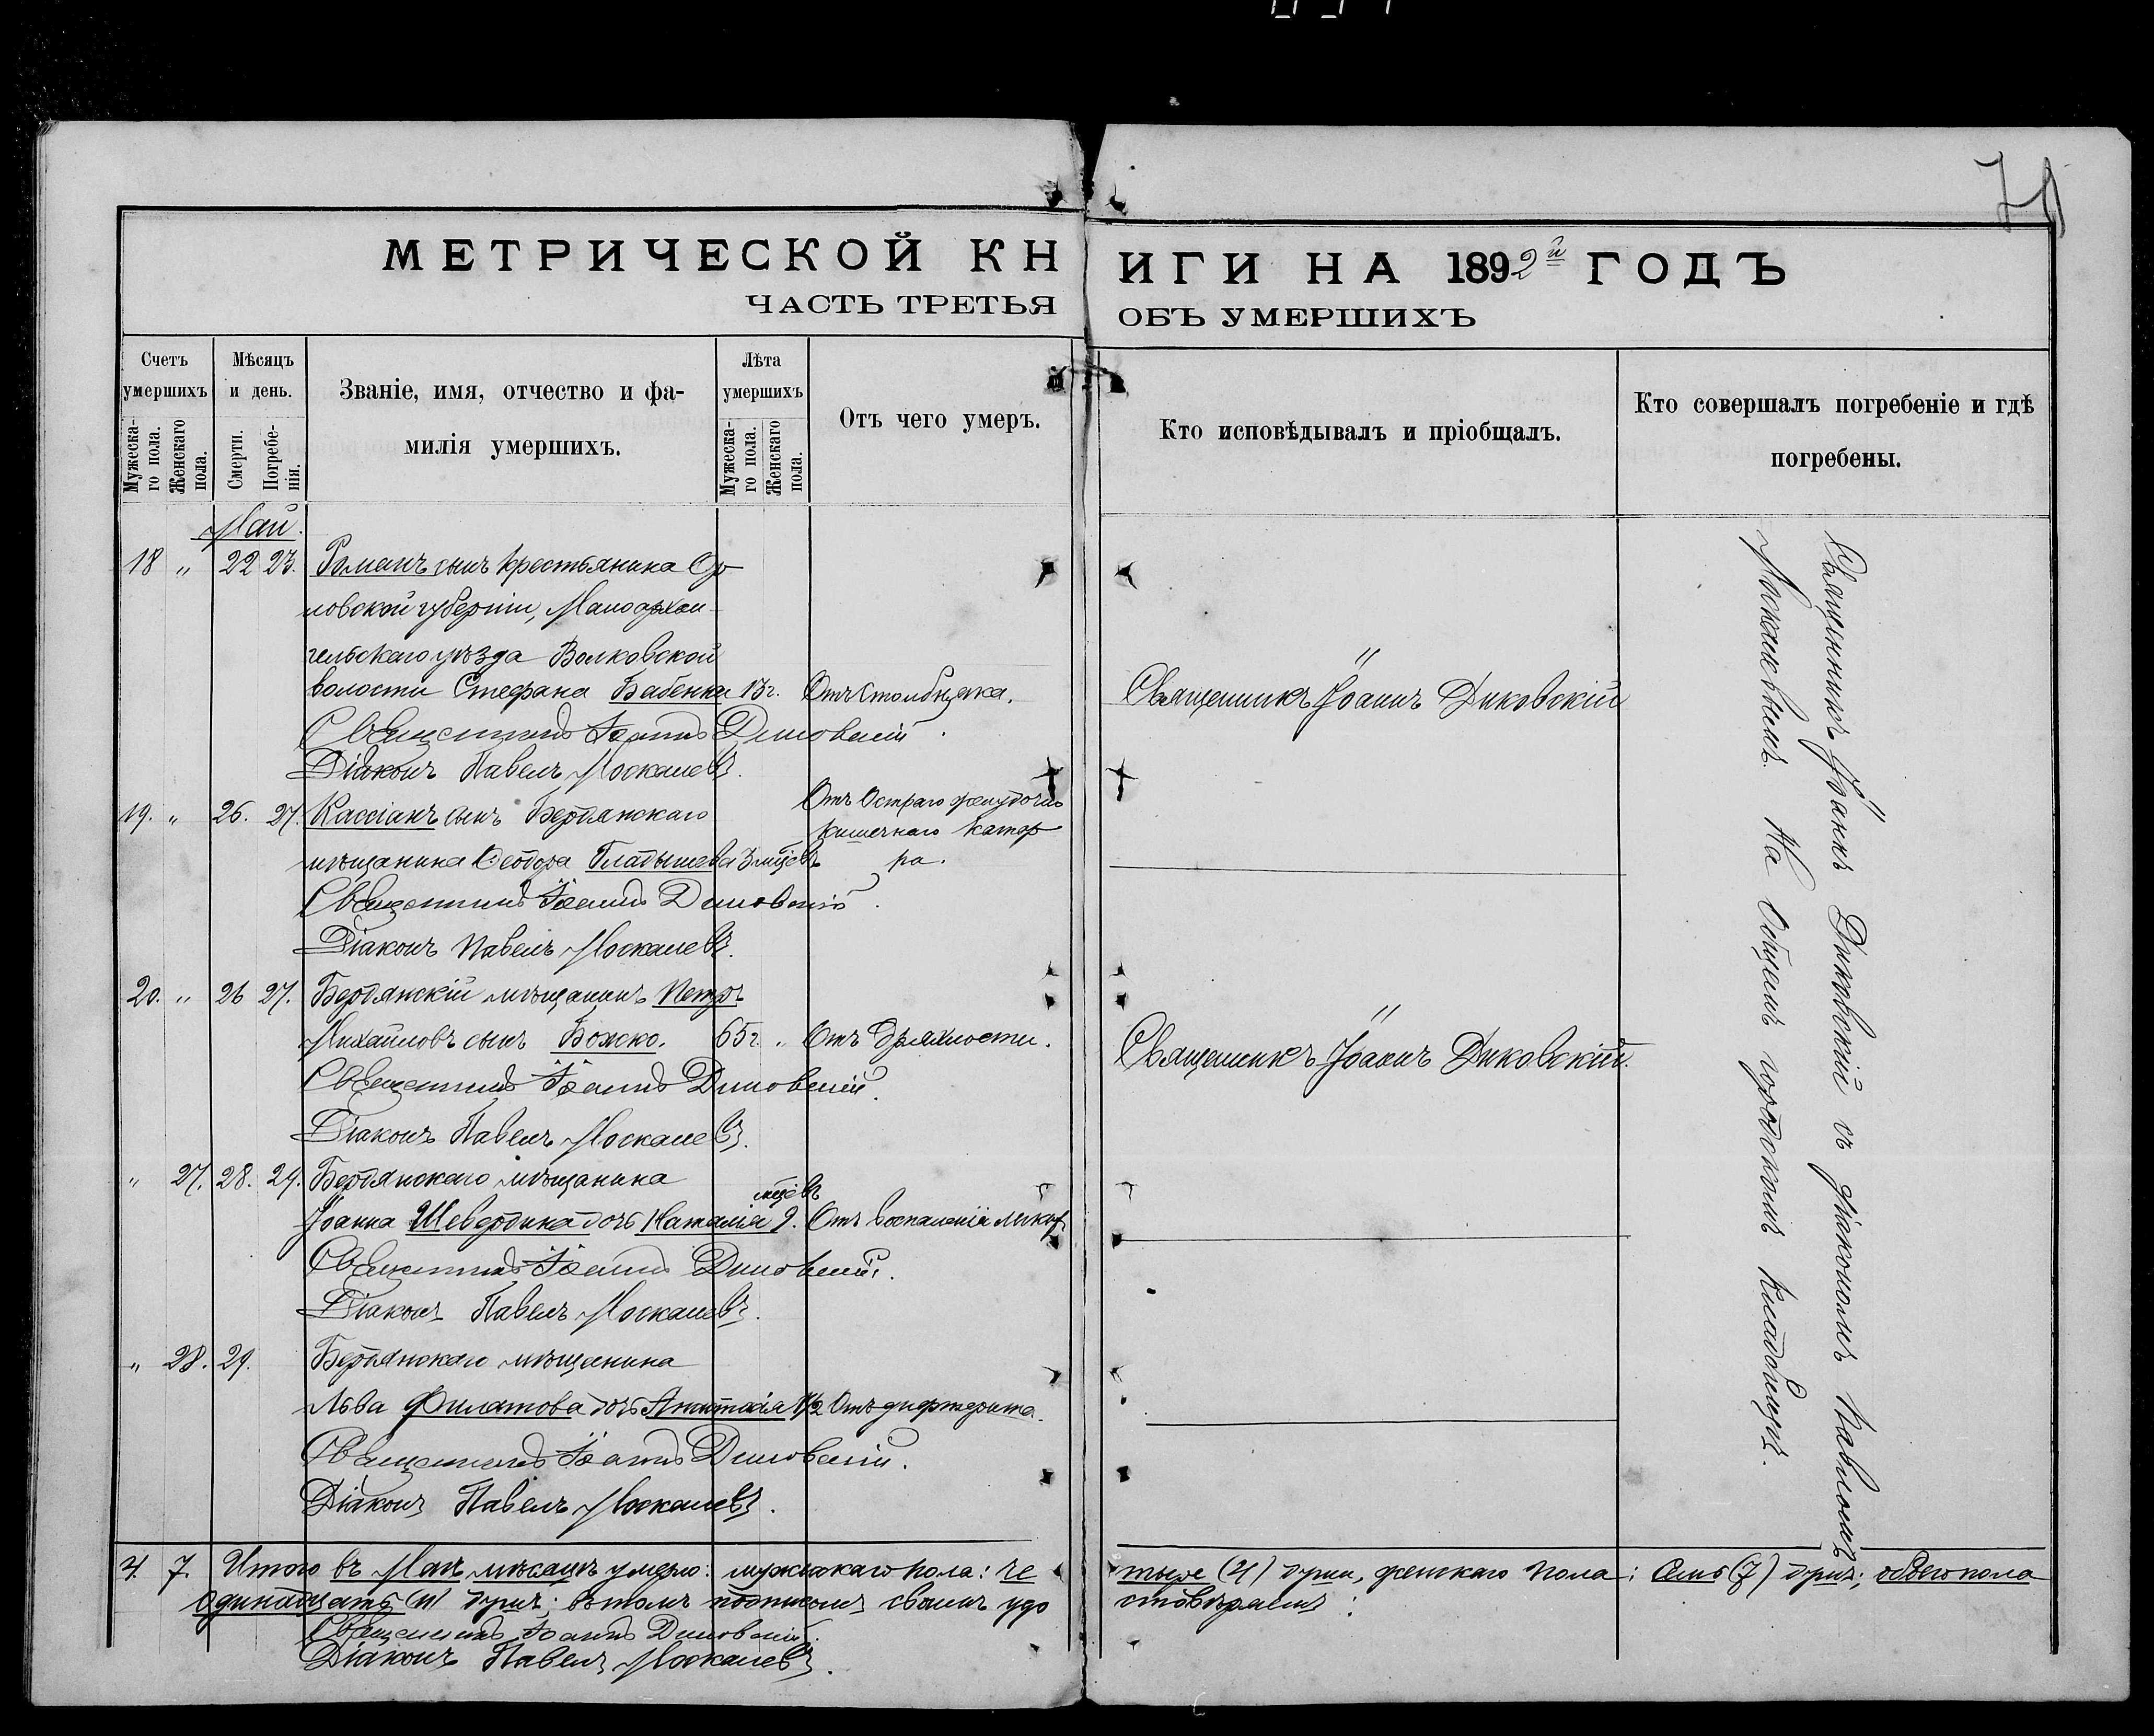 70
МЕТРИЧЕСКОЙ КНИГИ НА 1892й ГОДЪ
ЧАСТЬ ТРЕТЬЯ ОБЪ УМЕРШИХЪ
Счетъ умершихъ.
Мужеска-го пола.
Женскаго пола.
Мѣсяцъ и день.
Смерти.
Погребе-нія.
Званіе, имя, отчество и фа-
милія умершихъ.
Лѣта умершихъ
Мужеска-го пола.
Женскаго пола.
Отъ чего умеръ.
Кто исповѣдывалъ и пріобщалъ.
Кто совершалъ погребеніе и гдѣ
погребены.
Май.
18 „ 22 23. Романъ сынъ крестьянина Ор
ловской губерніи, Малоархан
гельскаго уѣзда Волковской
волости Стефана Бабенка 13г. Отъ столбняка. Священникъ Іоаннъ Диковскій
Священникъ Іоаннъ Диковскій.
Діаконъ Павелъ Москалевъ.
19. „ 26. 27. Кассіанъ сынъ Бердянскаго Отъ остраго желудочно
кишечнаго катар
мѣщанина Ѳеодора Гладышева 3 мѣсцевъ ра.
Священникъ Іоаннъ Диковскій.
Діаконъ Павелъ Москалевъ.
20. „ 26 27. Бердянскій мѣщанинъ Петръ
Михайловъ сынъ Божко. 65г. „ Отъ дряхлости. Священникъ Іоаннъ Диковскій.
Священникъ Іоаннъ Диковскій.
Діаконъ Павелъ Москалевъ.
„ 27. 28. 29. Бердянскаго мѣщанина
Іоанна Шевердина дочь Наталія 9. мѣсцевъ Отъ воспаленія легких
Священникъ Іоаннъ Диковскій.
Діаконъ Павелъ Москалевъ.
„ 28. 29. Бердянскаго мѣщанина
Льва Филатова дочь Анастасія 1/2 Отъ дифтерита.
Священникъ Іоаннъ Диковскій.
Діаконъ Павелъ Москалевъ.
Священникъ Іоаннъ Диковскій съ діакономъ Павломъ
Москалевымъ. На Общемъ городскомъ кладбищѣ.
4. 7. Итого въ Маѣ мѣсяцѣ умерло: мужскаго пола: четыре (4) души, женскаго пола: семь (7) душъ; обоего пола
одинадцать (11) душъ; въ томъ подписомъ своимъ удостовѣряемъ:
Священникъ Іоаннъ Диковскій.
Діаконъ Павелъ Москалевъ.